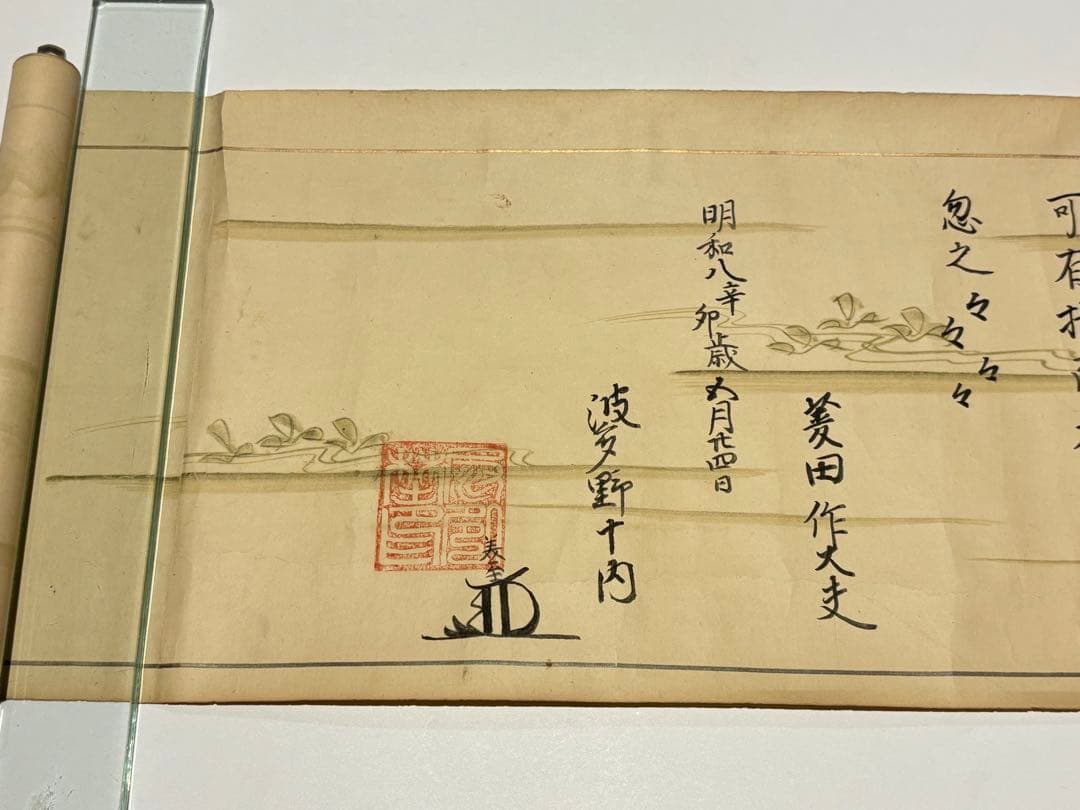 可有
忽之々々々々
菱田作大夫
明和八辛卯歳五月廿四日
波多野十内